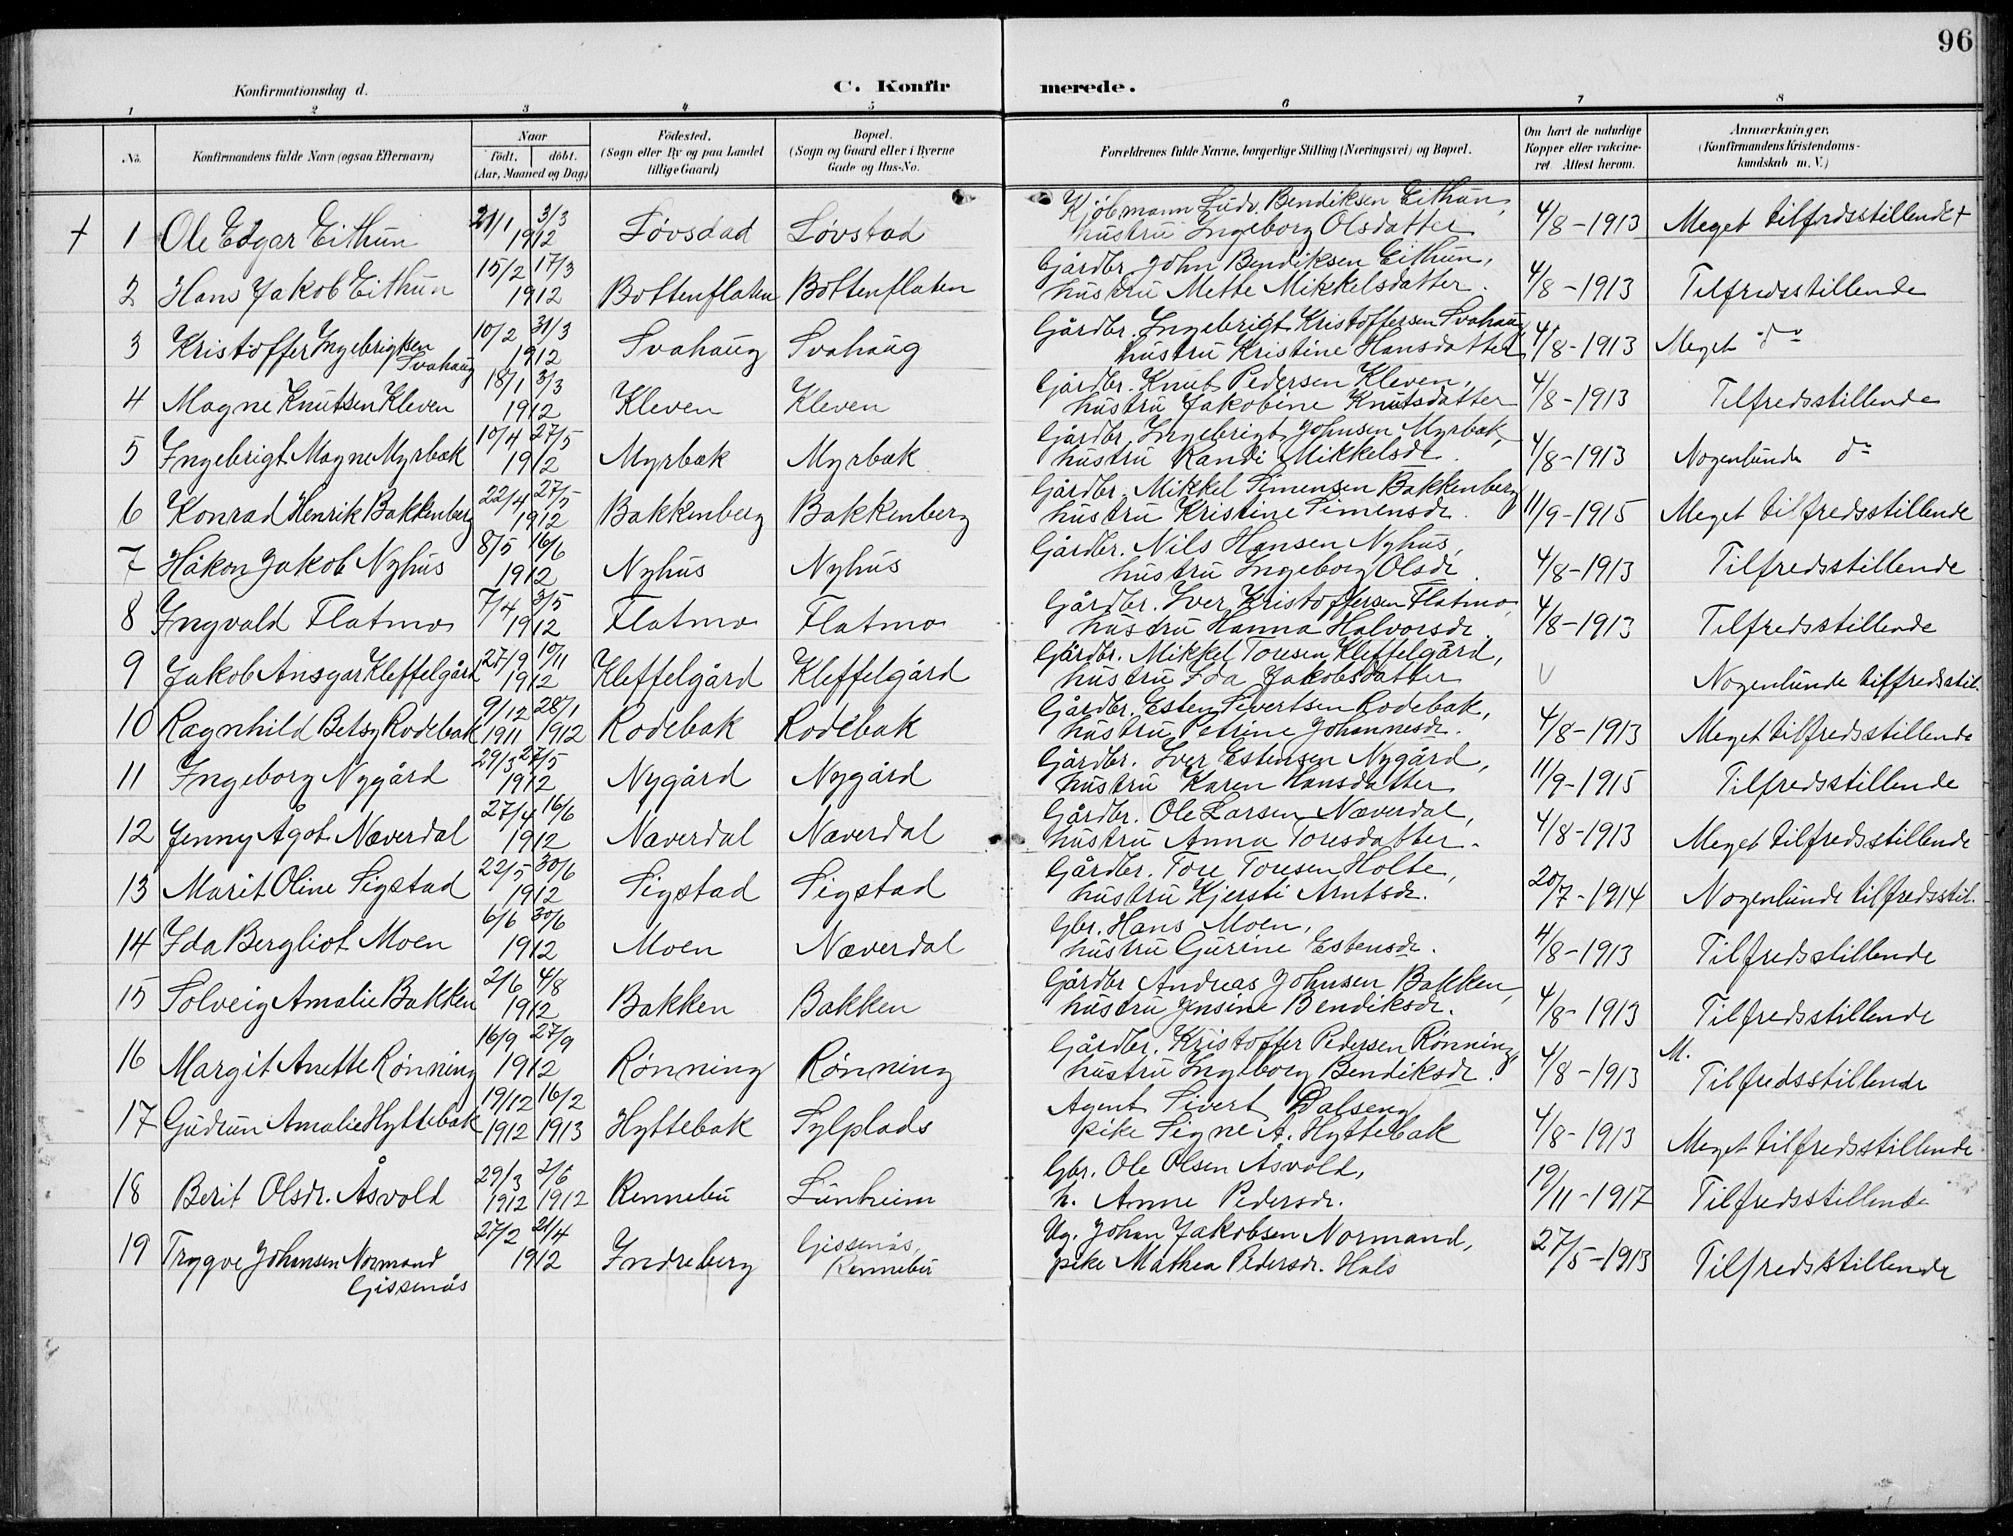 96
Konfirmationsdag d.
C. Konfirmerede.
1 2 3 4 5 6 7 8
No.
Konfirmandens fulde Navn (ogsaa Efternavn)
Naar
født. døbt.
(Aar, Maaned og Dag)
Fødested.
(Sogn eller By og paa Landet
tillige Gaard)
Bopæl.
(Sogn og Gaard eller i Byerne
Gade og Hus-No.
Forældrenes fulde Navne, borgerlige Stilling (Næringsvei) og Bopæl.
Om havt de naturlige
Kopper eller vakcine-
ret. Attest herom.
Anmærkninger,
(Konfirmandens Kristendoms-
kundskab m. V.)
+ 1 Ole Edgar Eithun 21/1 3/3 1912 Løvsdad Løvstad Kjøbmann Ludv. Bendiksen Eithun,
hustru Ingeborg Olsdatter 4/8-1913 Meget tilfredsstillende +
2 Hans Jakob Eithun 15/2 17/3 1912 Bottenflaten Bottenflaten Gårdbr. John Bendiksen Eithun,
hustru Mette Mikkelsdatter. 4/8-1913 Tilfredsstillende
3 Kristoffer Ingebrigtsen 10/2 31/3 1912 Svahaug Svahaug Gårdbr. Ingebrigt Kristoffersen Svahaug
Svahaug hustru Kristine Hansdatter 4/8-1913 Meget do
4 Magne Knutsen Kleven 18/1 3/3 1912 Kleven Kleven Gårdbr. Knut Pedersen Kleven,
hustru Jakobine Knutsdatter 4/8-1913 Tilfredsstillende
5 Ingebrigt Magne Myrbak 10/4 27/5 1912 Myrbak Myrbak Gårdbr. Ingebrigt Johnsen Myrbak,
hustru Randi Mikkelsdr. 4/8-1913 Nogenlunde do
6 Konrad Henrik Bakkenberg 22/4 27/5 1912 Bakkenberg Bakkenberg Gårdbr. Mikkel Simensen Bakkenberg
hustru Kristine Simensdr. 11/9-1915 Meget tilfredsstillende
7 Håkon Jakob Nyhus 8/5 16/6 1912 Nyhus Nyhus Gårdbr. Nils Hansen Nyhus,
hustru Ingeborg Olsdr. 4/8-1913 Tilfredsstillende
8 Ingvald Flatmo 7/4 3/5 1912 Flatmo Flatmo Gårdbr. Iver Kristoffersen Flatmo,
hustru Hanna Halvorsdr. 4/8-1913 Tilfredsstillende
9 Jakob Ansgar Kleffelgård 27/9 10/11 1912 Kleffelgård Kleffelgård Gårdbr. Mikkel Toresen Kleffelgård,
hustru Ida Jakobsdatter v Nogenlunde tilfredsstil.
10 Ragnhild Betsy Rodebak 9/12 1911 28/1 1912 Rodebak Rodebak Gårdbr. Esten Sivertsen Rodebak,
hustru Petrine Johannesdr. 4/8-1913 Meget tilfredsstillende
11 Ingeborg Nygård 29/3 27/5 1912 Nygård Nygård Gårdbr. Iver Estensen Nygård,
hustru Karen Hansdatter 11/9-1915 Tilfredsstillende
12 Jenny Ågot Næverdal 27/4 16/6 1912 Næverdal Næverdal Gårdbr. Ole Larsen Næverdal,
hustru Anna Toresdatter. 4/8-1913 Meget tilfredsstillende
13 Marit Oline Sigstad 22/5 30/6 1912 Sigstad Sigstad Gårdbr. Tore Toresen Holte,
hustru Kjersti Arntsdr. 20/7-1914 Nogenlunde tilfredsstil.
14 Ida Bergliot Moen 6/6 30/6 1912 Moen Næverdal Gbr. Hans Moen,
hustru Gurine Estensdr. 4/8-1913 Tilfredsstillende
15 Solveig Amalie Bakken 2/6 4/8 1912 Bakken Bakken Gårdbr Andreas Johnsen Bakken,
hustru Jnsine Bendiksdr. 4/8-1913 Tilfredsstillende
16 Margit Anette Rønning 16/9 27/9 1912 Rønning Rønning Gårdbr. Kristoffer Pedersen Rønning
hustru Ingeborg Bendiksdr. 4/8-1913 M. Tilfredsstillende
17 Gudrun Amalie Hyttebak 19/12 1912 16/2 1913 Hyttebak Sylplads Agent Sivert Dalseng
pike Signe A. Hyttebak 4/8-1913 Meget tilfredsstillende
18 Berit Olsdr. Åsvold 29/3 1912 2/6 1912 Rennebu Lunheim Gbr. Ole Olsen Åsvold,
h. Anne Pedersdr. 19/11-1917 Tilfredsstillende
19 Trygve Johansen Normand 27/2 21/4 1912 Indreberg Gissenås, Ug. Johan Jakobsen Normand,
Gissenås Rennebu pike Mathea Pedersdr. Hals 27/5-1913 Tilfredsstillende